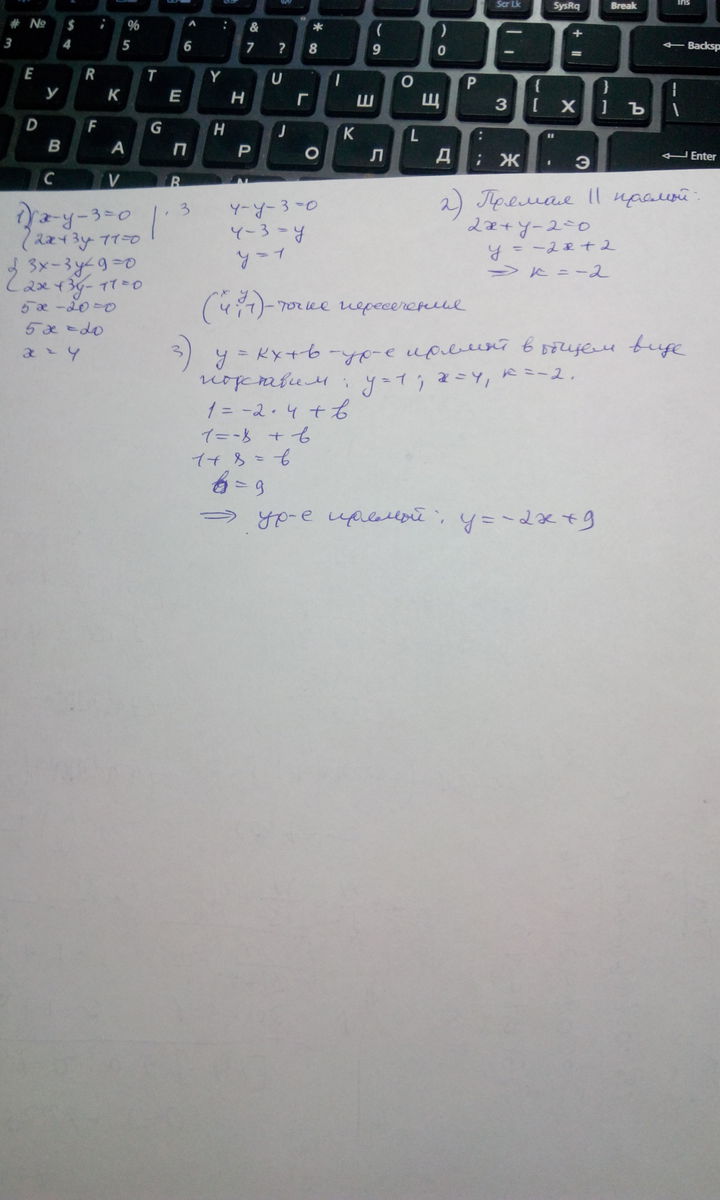 Scr Lk SysRq Break Ins
# № 3 $ ; 4 % : 5 ^ : 6 & ? 7 * 8 ( 9 ) 0 — - + = Backsp
E У R К T Е Y Н U Г I Ш O Щ P З { [ Х } ] Ъ | \
D В F А G П H Р J О K Л L Д : ; Ж " ' Э Enter
C V B N
1) { x-y-3=0 | · 3
2x+3y-11=0
{ 3x-3y-9=0
2x+3y-11=0
5x-20=0
5x=20
x=4
4-y-3=0
4-3=y
y=1
x y
(4;1) - точка пересечения
2) Прямая || прямой:
2x+y-2=0
y=-2x+2
=> k=-2
3) y=kx+b - ур-е прямой в общем виде
подставим: y=1; x=4, k=-2.
1=-2·4+b
1=-8+b
1+8=b
b=9
=> ур-е прямой: y=-2x+9